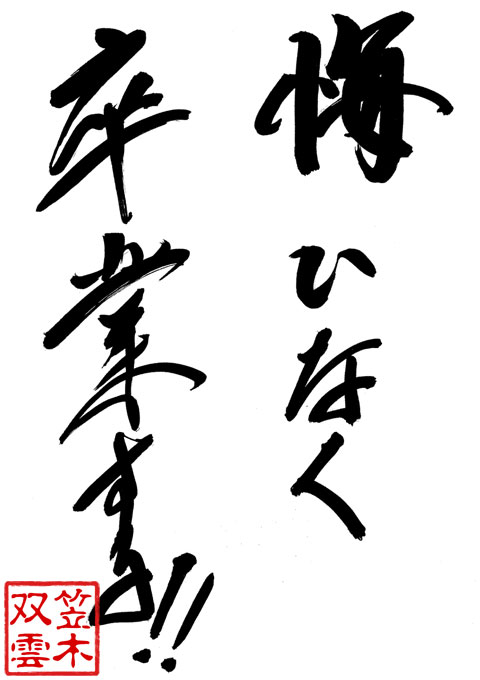 悔ひなく
卒業する!!
笠木
双雲